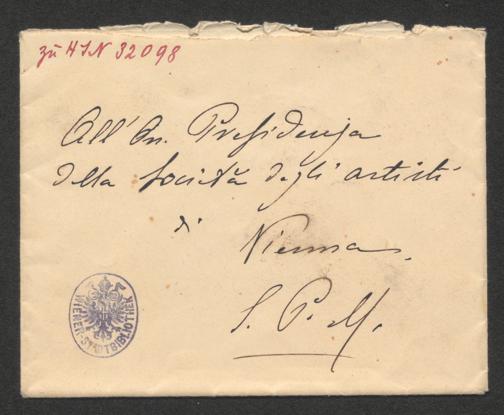 zu HIN 32098
All'On. Presidenza
della Società degli artisti
di
Vienna.
S. P. M.
WIENER-STADTBIBLIOTHEK